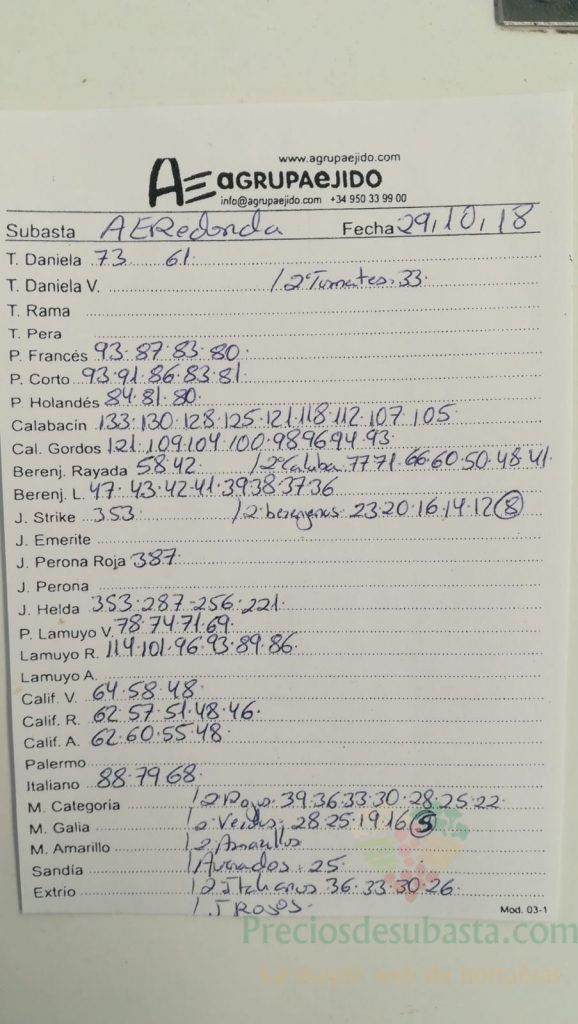 www.agrupaejido.com
AE aGRUPAeJIDO
info@agrupaejido.com +34 950 33 99 00
Subasta AERedonda Fecha 29,10,18
T. Daniela 73 61.
T. Daniela V. /2ªTomates.33.
T. Rama
T. Pera
P. Francés 93.87.83.80
P. Corto 93.91.86.83.81
P. Holandés 84.81.80.
Calabacín 133.130.128.125.121.118.112.107.105
Cal. Gordos 121.109.104.100.98.96.94.93
Berenj. Rayada 58 42. /2ªCalaba 77 71.66.60.50.48.41
Berenj. L. 47.43.42.41.39.38.37.36
J. Strike 353. /2ªberenjenas 23.20.16.14.12 (8)
J. Emerite
J. Perona Roja 387.
J. Perona
J. Helda 353.287.256.221.
P. Lamuyo V. 78.74.71.69.
Lamuyo R. 114.101.96.93.89.86.
Lamuyo A.
Calif. V. 64.58.48.
Calif. R. 62.57.51.48.46.
Calif. A. 62.60.55.48.
Palermo
Italiano 88.79.68.
M. Categoria /2 Rojo 39.36.33.30.28.25.22
M. Galia /2 Verdes 28.25.19.16 (5)
M. Amarillo /2 Amarillos
Sandía / 25.
Extrio /2 Italianos 36.33.30.26.
/.J ROJOS.
Mod. 03-1
Preciosdesubasta.com
La mayor web de hortalizas